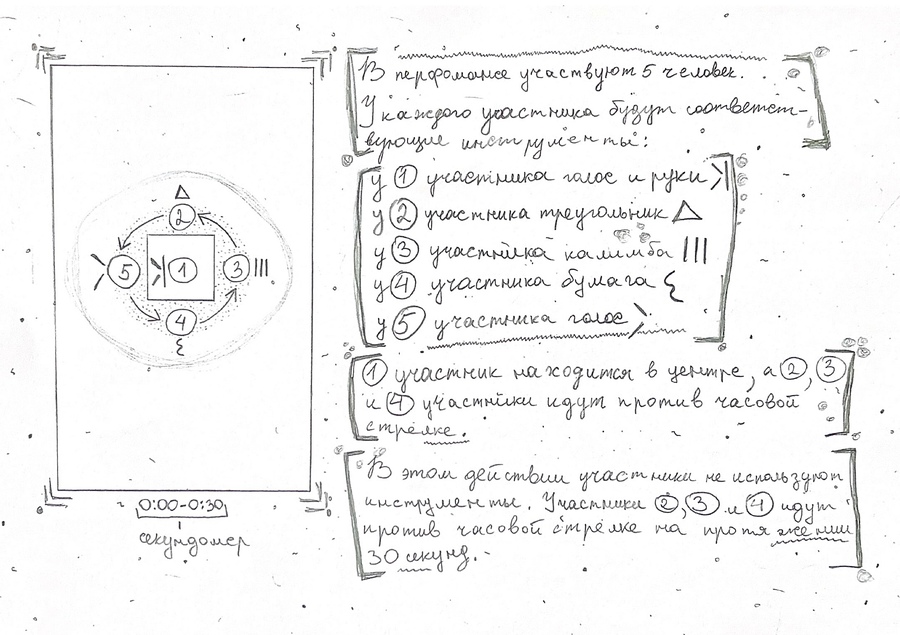 В перфомансе участвуют 5 человек.
У каждого участника будут соответст-
вующие инструменты:
у 1 участника голос и руки
у 2 участника треугольник
у 3 участника калимба
у 4 участника бумага
у 5 участника голос
1 участник находится в центре, а 2, 3
и 4 участники идут против часовой
стрелке.
В этом действии участники не используют
инструменты. Участники 2, 3 и 4 идут
против часовой стрелке на протяжении
30 секунд.
2
5 1 3
4
0:00-0:30
секундомер